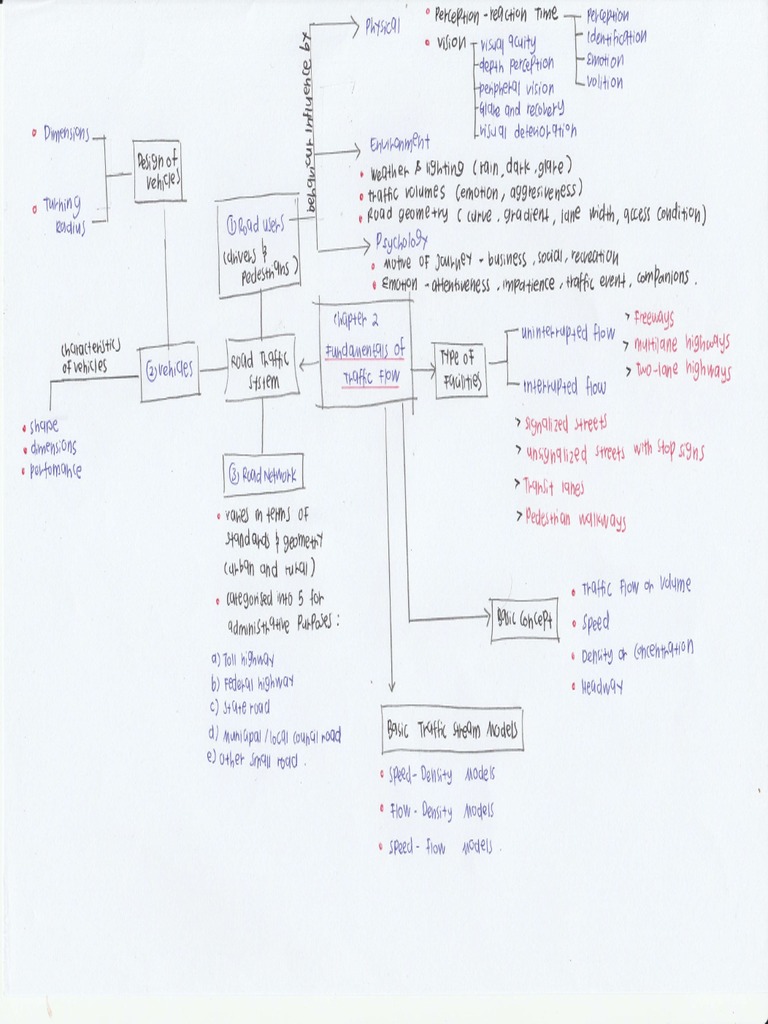 Physical
• Perception-reaction Time
Perception
Identification
Emotion
Volition
• Vision
visual acuity
depth perception
peripheral vision
Glare and recovery
visual deterioration
behaviour influence by
Environment
• Weather & lighting (rain, dark, glare)
• traffic volumes (emotion, aggresiveness)
• Road geometry (curve, gradient, lane width, access condition)
Psychology
• Motive of journey - business, social, recreation
• Emotion - attentiveness, impatience, traffic event, companions.
• Dimensions
• Turning
Radius
Design of
Vehicles
① Road users
(drivers &
pedestrians)
characteristics
of vehicles
② Vehicles
Road Traffic
System
Chapter 2
Fundamentals of
Traffic Flow
Type of
Facilities
uninterrupted flow
> Freeways
> multilane highways
> Two-lane highways
interrupted flow
> signalized streets
> unsignalized streets with stop signs
> Transit lanes
> Pedestrian walkways
• shape
• dimensions
• perfomance
③ Road Network
• varies in terms of
standards & geometry
(urban and rural)
• categorised into 5 for
administrative purposes:
a) Toll highway
b) Federal highway
c) State road
d) municipal/local council road
e) other small road.
Basic Concept
• Traffic Flow or Volume
• Speed
• Density or Concentration
• Headway
Basic Traffic Stream Models
• Speed-Density Models
• Flow-Density Models
• Speed-flow models.